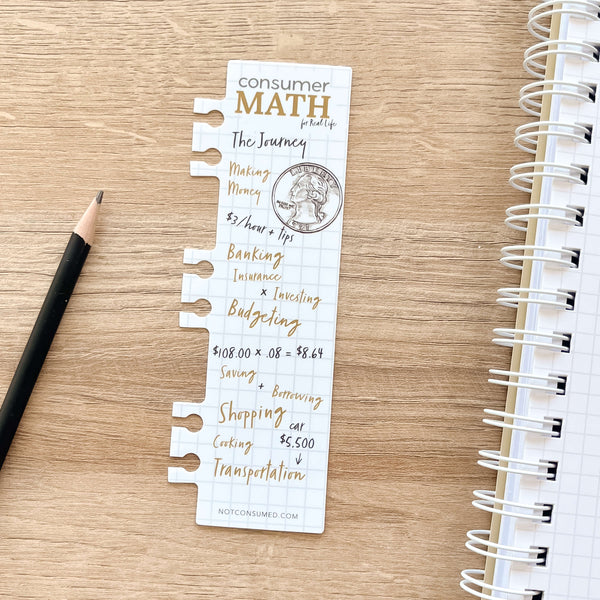 consumer
MATH
for Real Life
The Journey
Making
Money
LIBERTY
$3/hour + tips
Banking
Insurance
x Investing
Budgeting
$108.00 x .08 = $8.64
Saving
+ Borrowing
Shopping
car
Cooking $5,500
↓
Transportation
NOTCONSUMED.COM